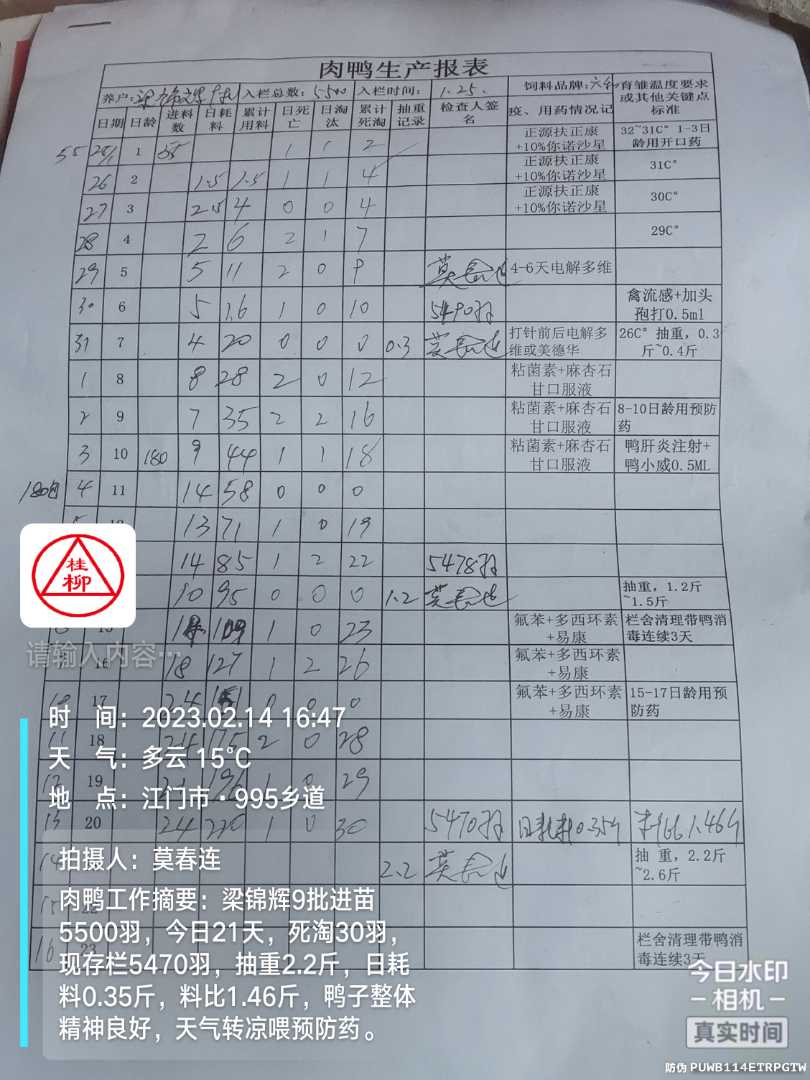 肉鸭生产报表
养户: 入栏总数: 5500 入栏时间: 1.25. 饲料品牌: 六和 育雏温度要求或其他关键点标准
日期 日龄 进料数 日耗料 累计用料 日死亡 日淘汰 累计死淘 抽重记录 检查人签名 疫、用药情况记
55 25/1 1 55 1 1 2 正源扶正康+10%你诺沙星 32~31C° 1-3日龄用开口药
26 2 1.5 1.5 1 1 4 正源扶正康+10%你诺沙星 31C°
27 3 2.5 4 0 0 4 正源扶正康+10%你诺沙星 30C°
28 4 2 6 2 1 7 29C°
29 5 5 11 2 0 9 莫春连 4-6天电解多维
30 6 5 16 1 0 10 5490羽 禽流感+加头孢打0.5ml
31 7 4 20 0 0 0 0.3 莫春连 打针前后电解多维或美德华 26C° 抽重，0.3斤~0.4斤
1 8 8 28 2 0 12 粘菌素+麻杏石甘口服液
2 9 7 35 2 2 16 粘菌素+麻杏石甘口服液 8-10日龄用预防药
3 10 180 9 44 1 1 18 粘菌素+麻杏石甘口服液 鸭肝炎注射+鸭小威0.5ML
180包 4 11 14 58 0 0 0
13 71 1 0 19
14 85 1 2 22 5478羽
10 95 0 0 0 1.2 莫春连 抽重，1.2斤~1.5斤
15 14 109 1 0 23 氟苯+多西环素+易康 栏舍清理带鸭消毒连续3天
16 18 127 1 2 26 氟苯+多西环素+易康
17 24 151 0 0 0 氟苯+多西环素+易康 15-17日龄用预防药
11 18 24 175 2 0 28
12 19 21 196 1 0 29
13 20 24 220 1 0 30 5470羽 日耗料0.35斤 料比1.46斤
14 2.2 莫春连 抽 重，2.2斤~2.6斤
15 22
16 23 栏舍清理带鸭消毒连续3天
桂柳
请输入内容…
时 间：2023.02.14 16:47
天 气：多云 15℃
地 点：江门市·995乡道
拍摄人：莫春连
肉鸭工作摘要：梁锦辉9批进苗
5500羽，今日21天，死淘30羽，
现存栏5470羽，抽重2.2斤，日耗
料0.35斤，料比1.46斤，鸭子整体
精神良好，天气转凉喂预防药。
今日水印
相机
真实时间
防伪 PUWB114ETRPGTW